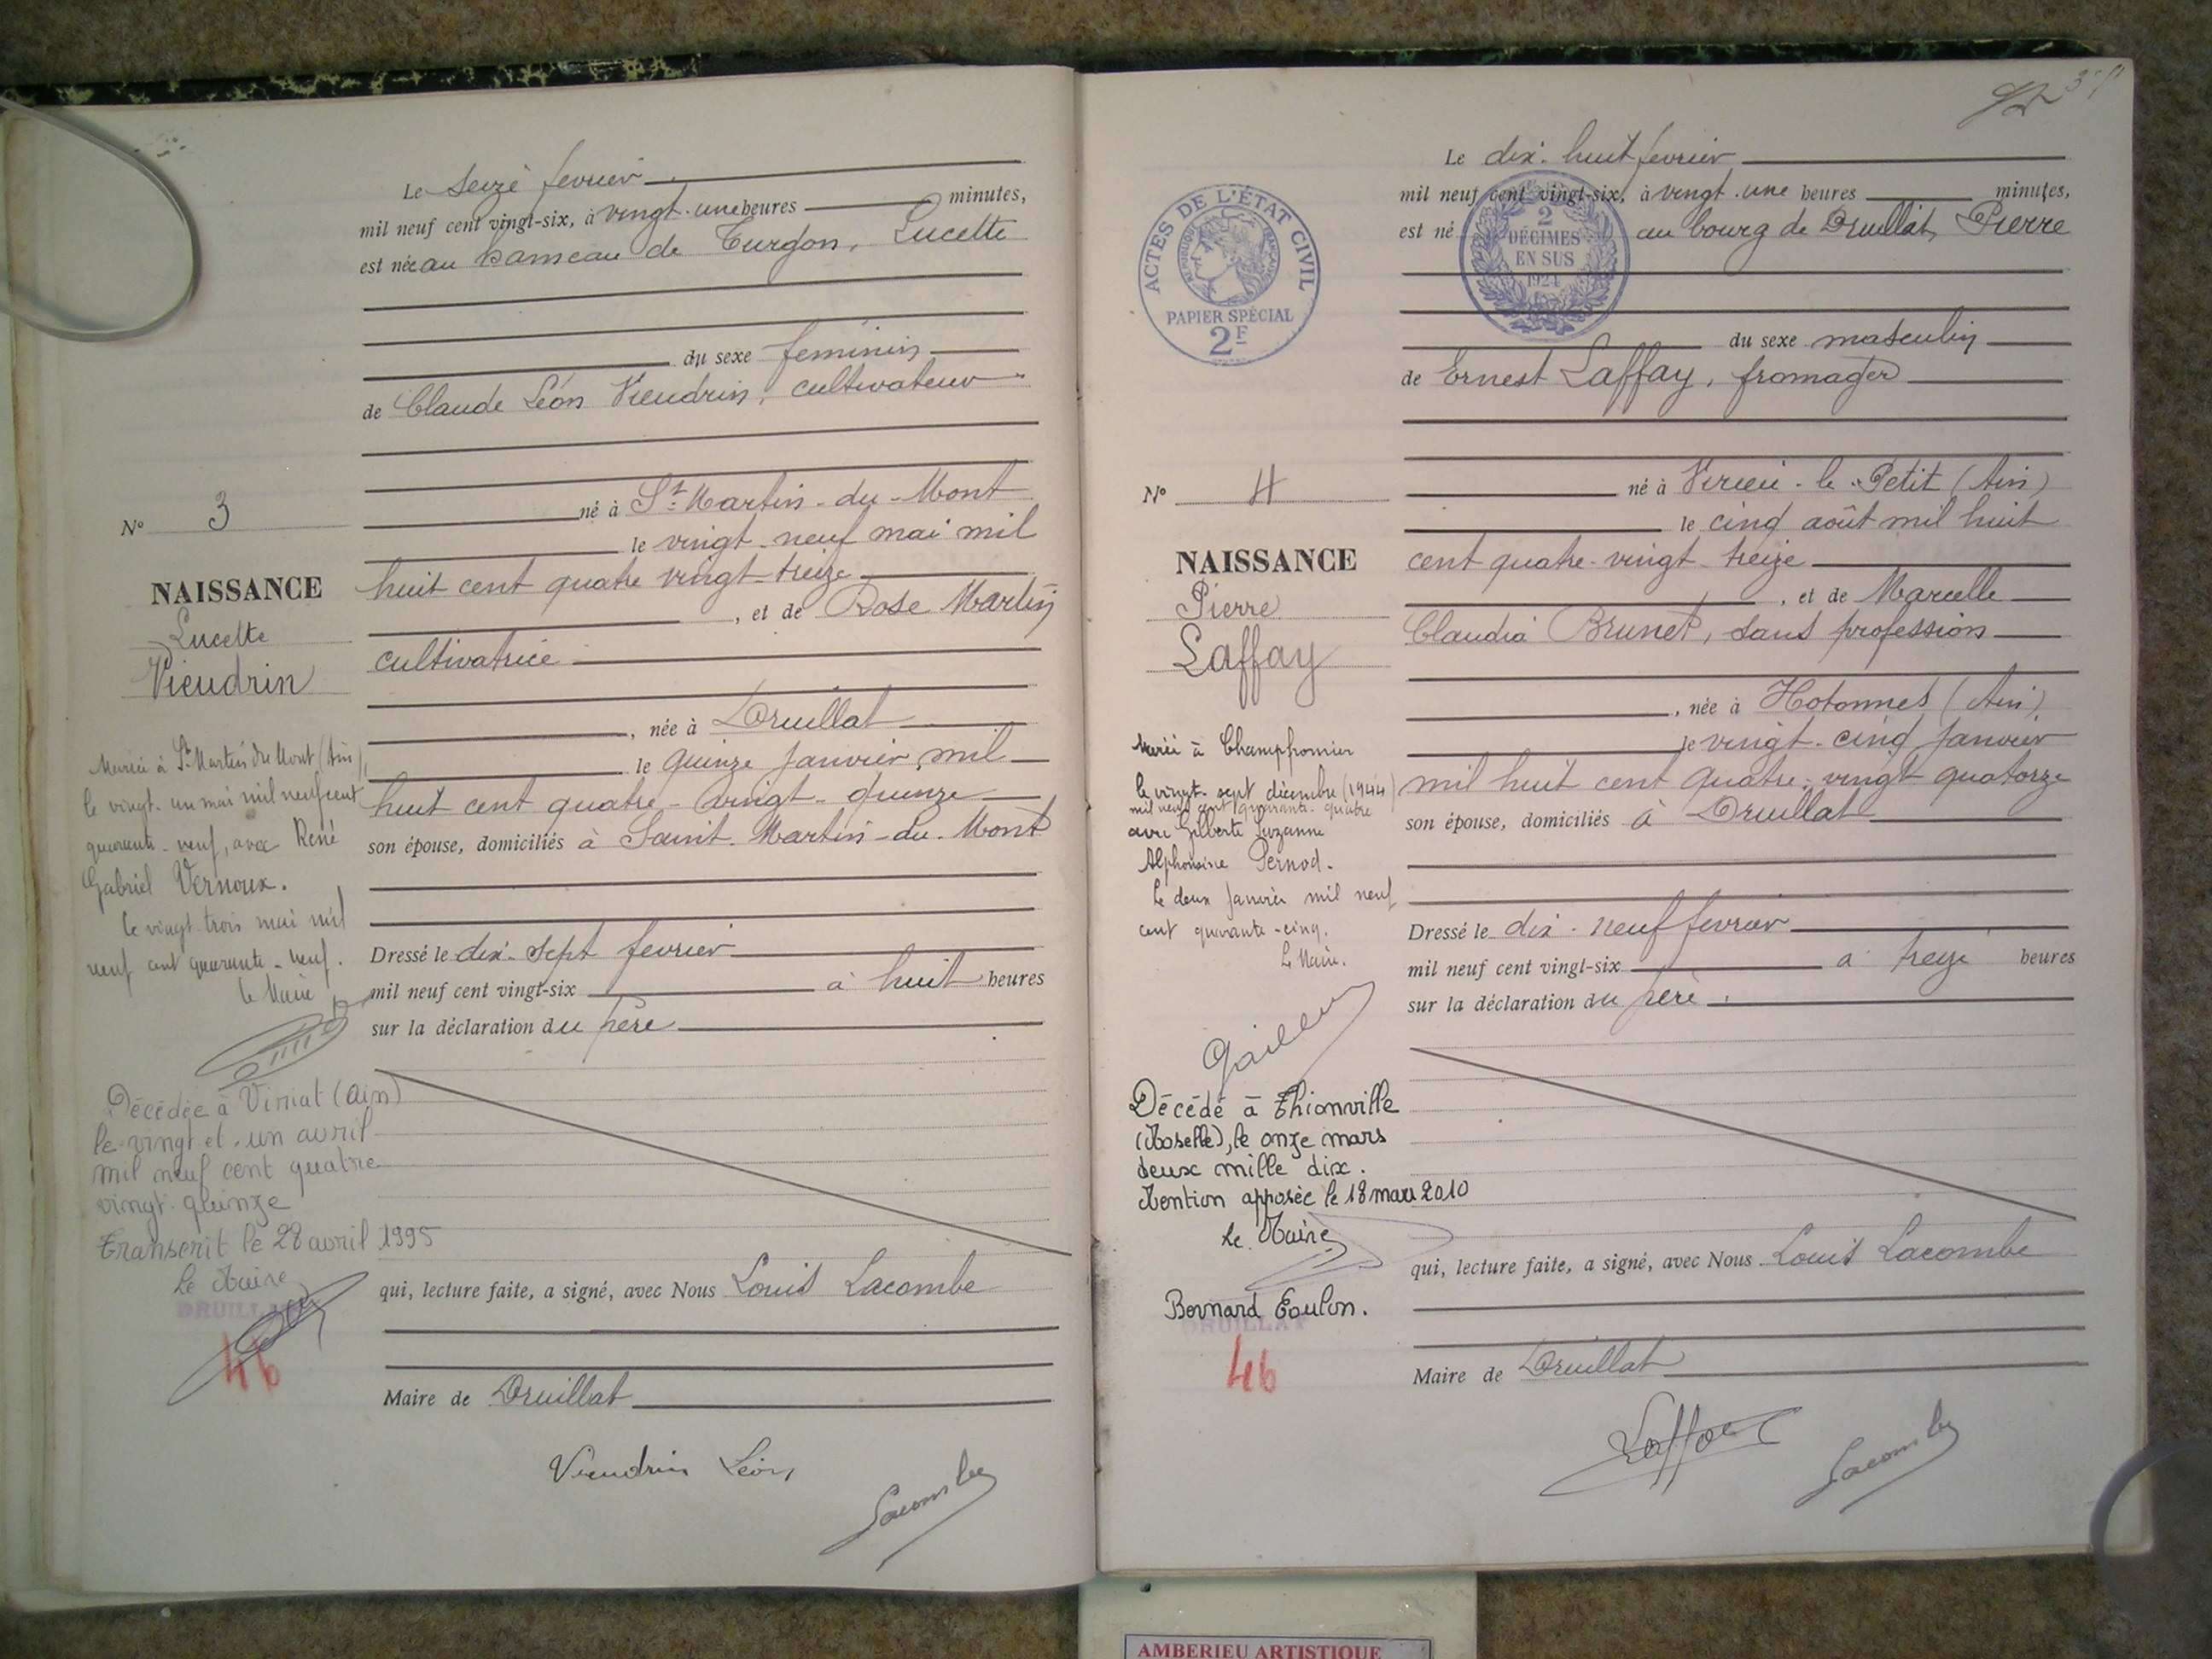 Le seize fevrier
mil neuf cent vingt-six, à vingt-une heures minutes,
est née au hameau de Turgon, Lucette
du sexe feminin
de Claude Léon Vieudrin, cultivateur
né à St Martin-du-Mont
N° 3
le vingt-neuf mai mil
NAISSANCE
huit cent quatre vingt-treize
Lucette
, et de Rose Martin
Vieudrin
cultivatrice
, née à Druillat
le quinze janvier mil
huit cent quatre-vingt-quinze
son épouse, domiciliés à Saint-Martin-du-Mont
Mariée à St Martin du Mont (Ain),
le vingt-un mai mil neuf cent
quarante-neuf, avec René
Gabriel Vernoux.
Le vingt-trois mai mil
neuf cent quarante-neuf.
Le Maire
Dressé le dix-sept fevrier
mil neuf cent vingt-six à huit heures
sur la déclaration du père
Décédée à Viriat (Ain)
le vingt et un avril
mil neuf cent quatre
vingt quinze
Transcrit le 28 avril 1995
Le Maire
DRUILLAT
46
qui, lecture faite, a signé, avec Nous Louis Lacombe
Maire de Druillat
Vieudrin Léon
Lacombe
Le dix-huit fevrier
mil neuf cent vingt-six, à vingt-une heures minutes,
est né au bourg de Druillat, Pierre
ACTES DE L'ÉTAT CIVIL
RÉPUBLIQUE FRANÇAISE
PAPIER SPÉCIAL
2F
2
DÉCIMES
EN SUS
1924
du sexe masculin
de Ernest Laffay, fromager
né à Virieu-le-Petit (Ain)
N° 4
le cinq août mil huit
NAISSANCE
cent quatre-vingt-treize
Pierre
, et de Marcelle
Laffay
Claudia Brunet, sans profession
, née à Hotonnes (Ain),
le vingt-cinq janvier
mil huit cent quatre-vingt quatorze
son épouse, domiciliés à Druillat
Marié à Champfromier
le vingt-sept décembre (1944)
mil neuf cent quarante-quatre
avec Gilberte Suzanne
Alphonsine Pernod.
Le deux janvier mil neuf
cent quarante-cinq.
Le Maire.
Dressé le dix-neuf fevrier
mil neuf cent vingt-six à treize heures
sur la déclaration du père
Décédé à Thionville
(Moselle), le onze mars
deux mille dix.
Mention apposée le 18 mars 2010
Le Maire
DRUILLAT
46
qui, lecture faite, a signé, avec Nous Louis Lacombe
Maire de Druillat
Laffay
Lacombe
AMBERIEU ARTISTIQUE